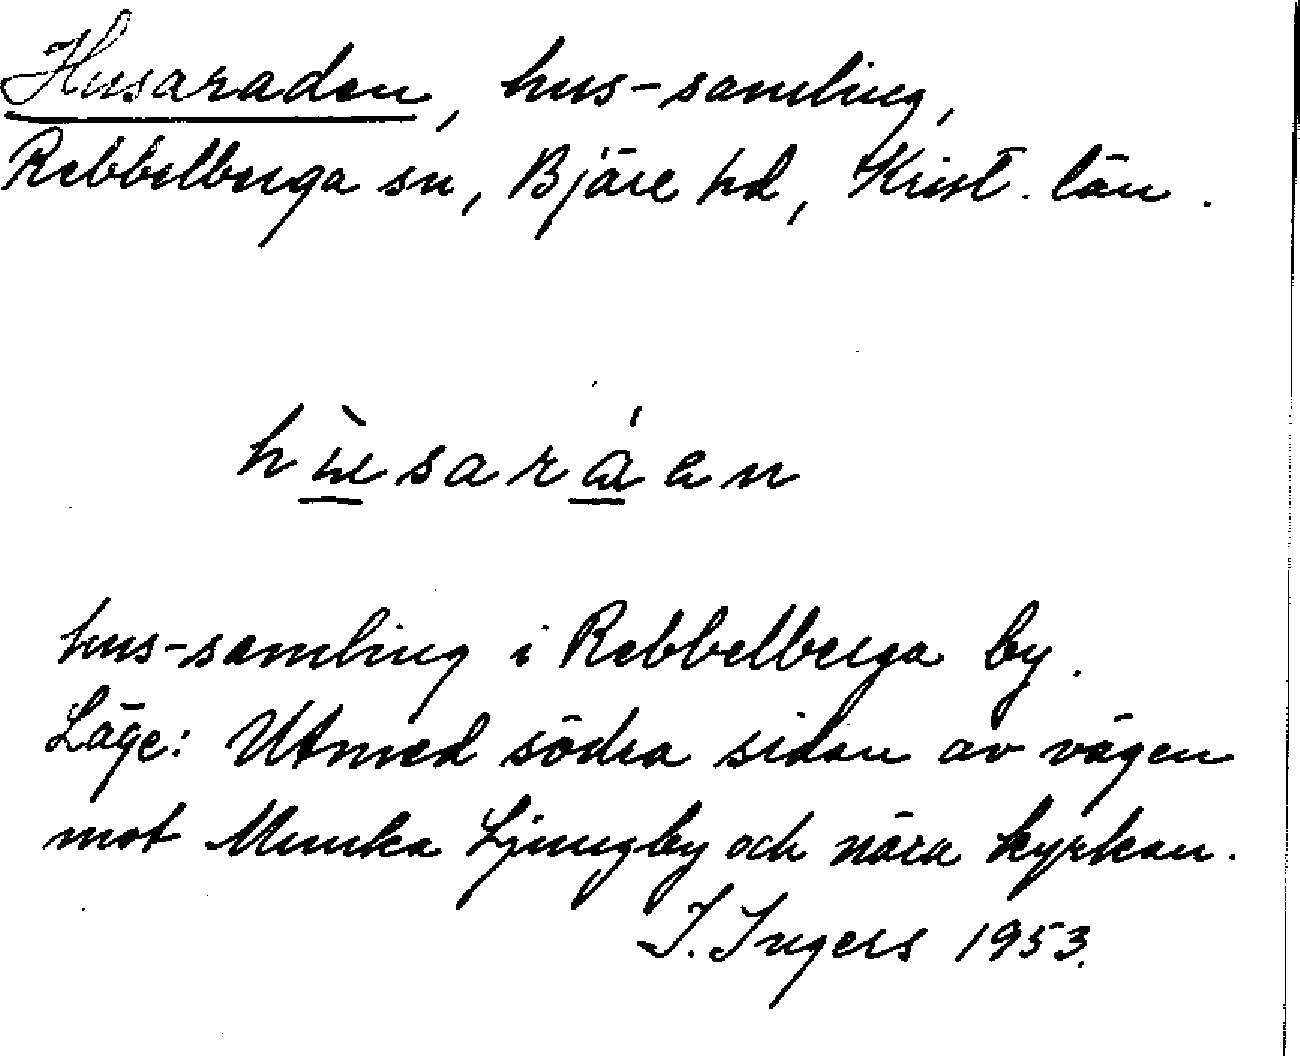 Husaraden, hus-samling,
Rebbelberga sn, Bjäre hd, Krist. län.
hùsaráen
hus-samling i Rebbelberga by.
Läge: Utmed södra sidan av vägen
mot Munka Ljungby och nära kyrkan.
I. Ingers 1953.